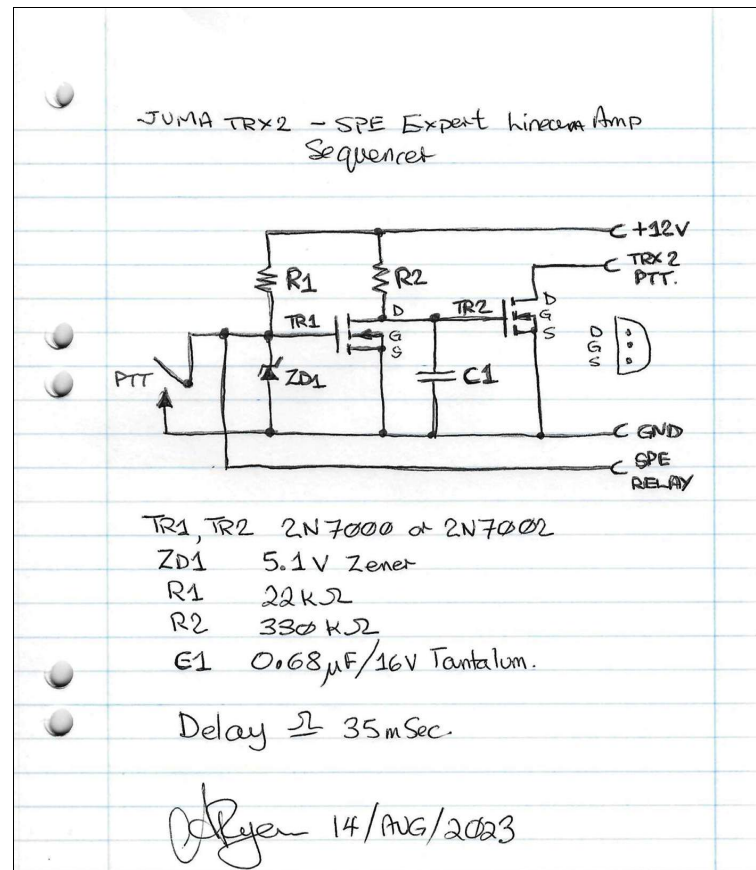 JUMA TRX2 - SPE Expert Linear Amp
Sequencer
+12V
TRX 2
PTT.
R1
R2
D
TR1
G
S
TR2
D
G
S
D
G
S
PTT
ZD1
C1
GND
SPE
RELAY
TR1, TR2 2N7000 or 2N7002
ZD1 5.1V Zener
R1 22KΩ
R2 330KΩ
C1 0.68μF/16V Tantalum.
Delay ≏ 35mSec.
14/AUG/2023